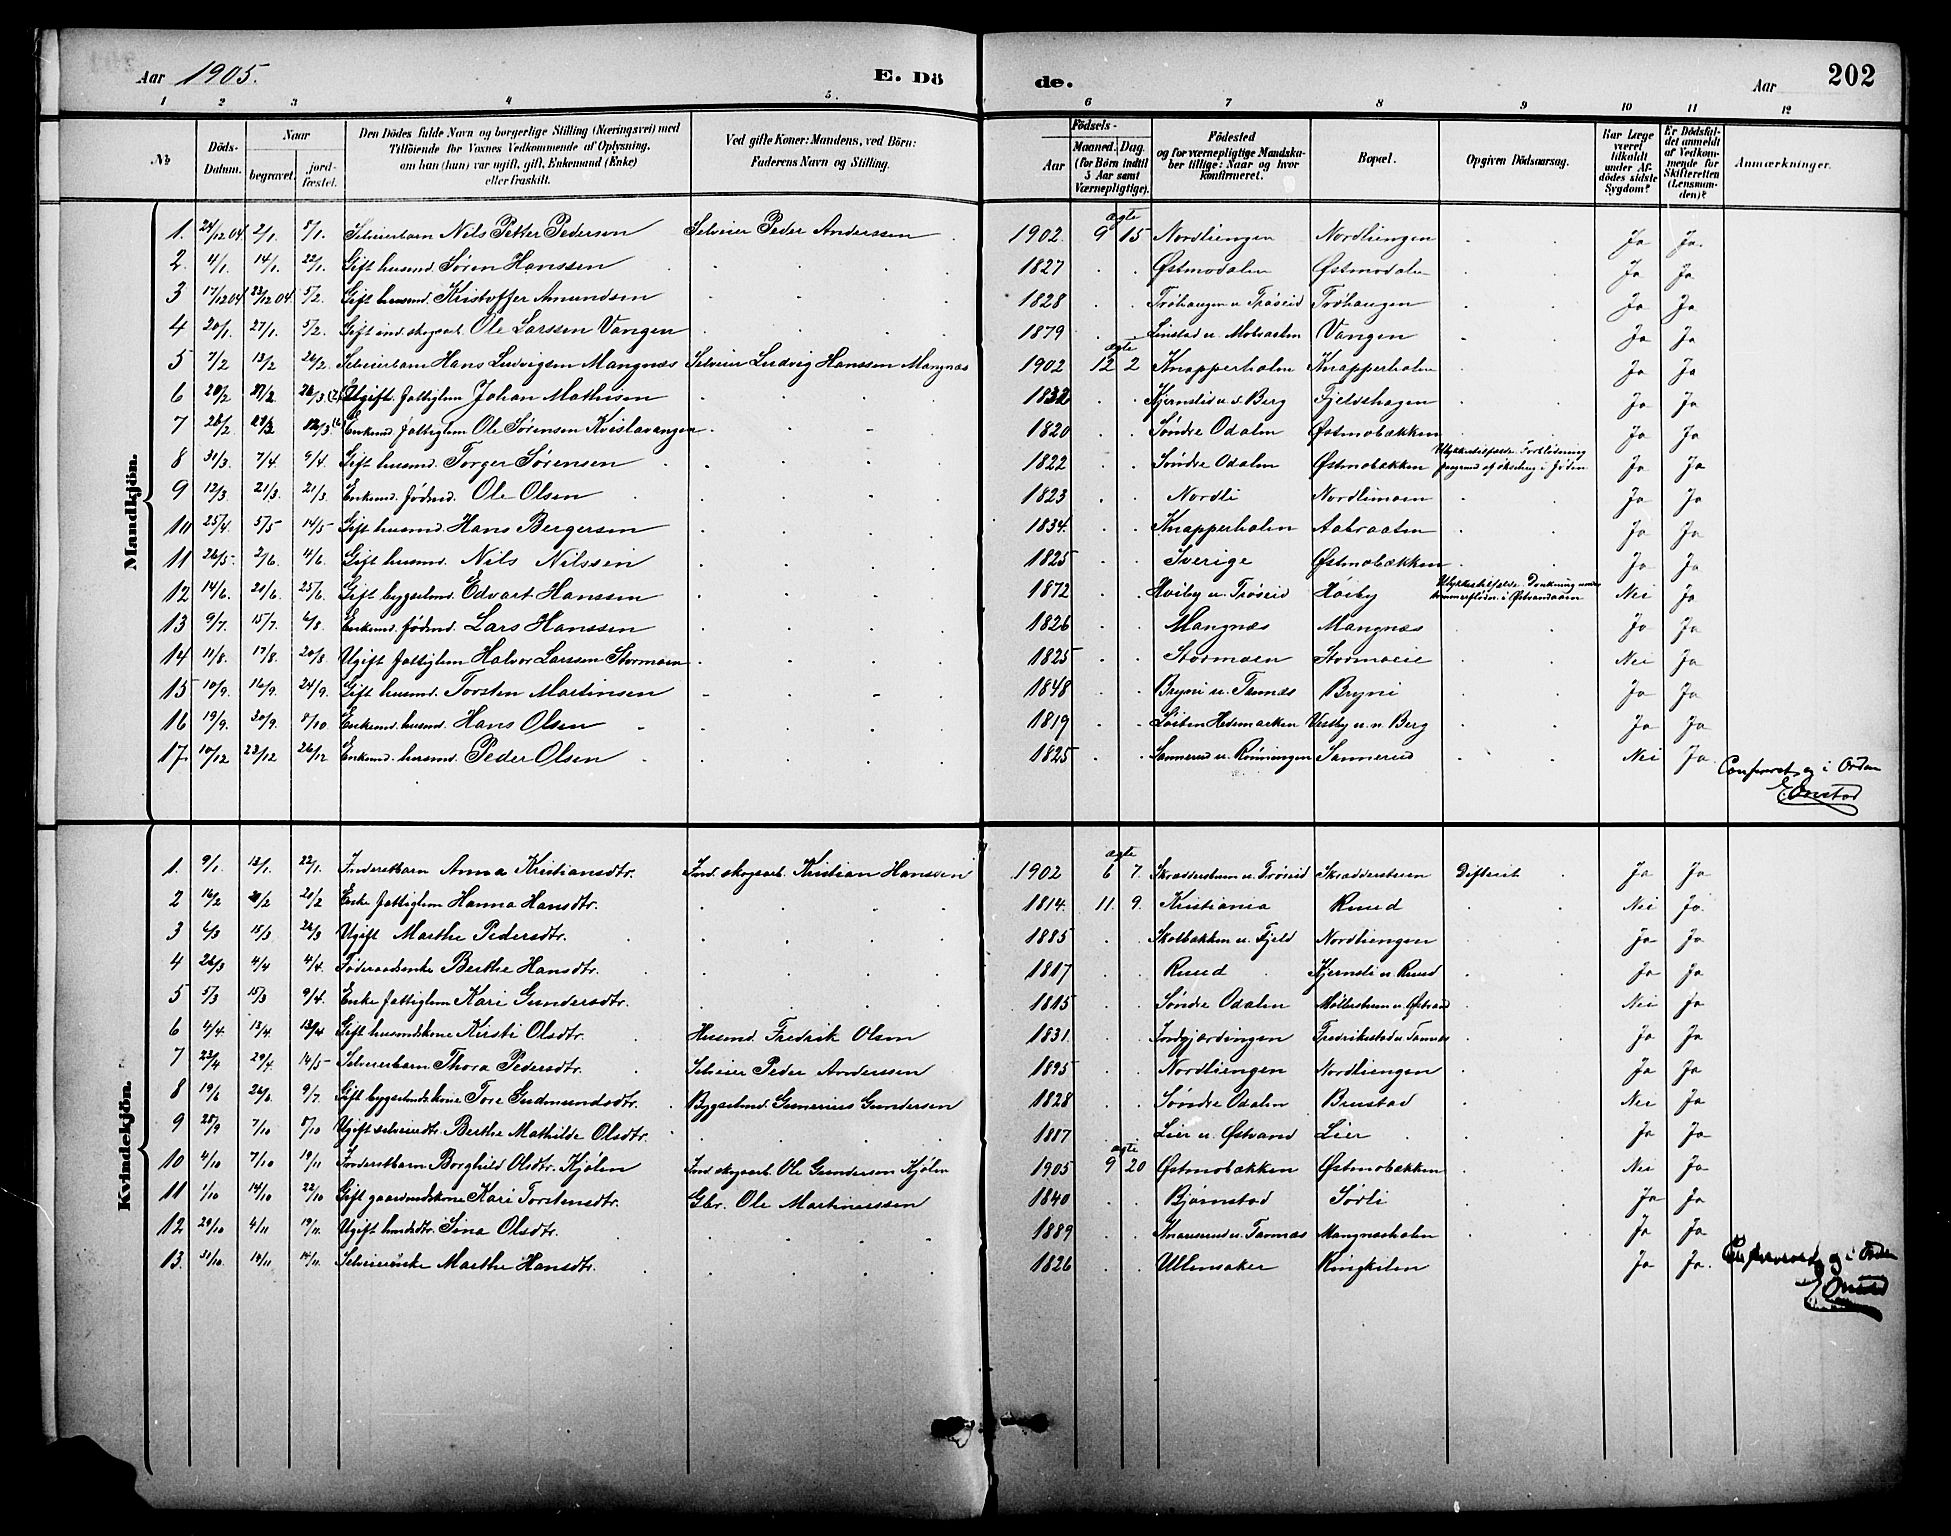 Aar 1905. E. Dö de. Aar 202
1 2 3 4 5. 6 7 8 9 10 11 12
№ Döds-Datum. Naar begravet. jordfæstet. Den Dödes fulde Navn og borgerlige Stilling (Næringsvei) med Tilföiende for Voxnes Vedkommende af Oplysning, om han (hun) var ugift, gift, Enkemand (Enke) eller fraskilt. Ved gifte Koner: Mandens, ved Börn: Faderens Navn og Stilling. Födsels- Aar Maaned. Dag. (for Börn indtil 5 Aar samt Værnepligtige). Födested og for værnepligtige Mandskaber tillige: Naar og hvor Konfirmeret. Bopæl. Opgiven Dödsaarsag. Har Læge været tilkaldt under Afdödes sidste Sygdom? Er Dödsfaldet anmeldt af Vedkommende for Skifteretten (Lensmanden)? Anmærkninger.
Mandkjön.
1. 24/12 04 2/1. 8/1. Selveierbarn Nils Petter Pedersen Selveier Peder Anderssen 1902. ægte 9 15 Nordliengen Nordliengen Ja Ja.
2. 4/1. 14/1. 22/1. Gift husmd. Søren Hanssen 1827 Østmodalen Østmodalen Ja Ja
3 17/12 04 22/12 04. 5/2. Gift husmd. Kristoffer Amundsen 1828 Trøhaugen u. Trøseid Trøhaugen Ja Ja
4 20/1. 27/1. 5/2. Gift ind. skogsarb. Ole Larssen Vangen 1879 Linstad u. Vangen Ja Ja
5 7/2 13/2 26/2. Selveierbarn Hans Ludvigsen Mangnæs Selveier Ludvig Hanssen Mangnæs 1902 ægte 12 2 Knapperholen Knapperholen Ja Ja
6 20/2 27/2 26/3. Ugift. fattiglem Johan Mathisen 1832 Kjernslid u. s. Berg Fjeldshagen Ja Ja
7 26/2 12/3. Enkemd. fattiglem Ole Sørensen Kvislavangen 1820 Søndre Odalen Østmobækken Ja Ja
8 31/3. 7/4. 9/4. Gift husmd. Torger Sørensen 1822 Søndre Odalen Østmobækken Ulykkestilfælde. Forblødning Ja Ja
9 12/3. 21/3. 21/3. Enkemd. födrmd. Ole Olsen 1823 Nordli Nordlimoen Ja Ja
10 25/4. 5/5 14/5 Gift husmd. Hans Bergersen 1834. Knapperholen Aabraaten Ja Ja
11 26/5. 2/6. 4/6. Gift husmd. Nils Nilssen 1825 Sverige Østmobækken Ja Ja
12 14/6. 21/6. 25/6. Gift bygselmd. Edvart Hanssen 1872 Høiby u. Trøseid Høiby Ulykkestilfælde. Drukning under tømmerfløtn. i Østrandaaen Nei Ja
13 9/7. 15/7. 6/8. Enkemd. födrmd. Lars Hanssen 1826 Mangnæs Mangnæs Ja Ja
14 11/8. 17/8. 20/8. Ugift fattiglem Halvor Larssen Stormoen 1825 Stormoen Stormoeie Nei Ja
15 10/9. 16/9. 24/9. Gift husmd. Torsten Martinsen 1848 Bryni u. Tannæs Bryni Ja Ja
16 19/9. 30/9. 8/10. Enkemd. husmd. Hans Olsen 1819 Løiten Hedemarken Vestby u. n. Berg Ja Ja
17. 10/12 23/12 26/12 Enkemd. husmd. Peder Olsen 1825 Sannerud u. Rønningen Sannerud Nei Ja. Confereret og i Orden
E. Onstad
Kvindekjön.
1. 9/1. 13/1. 22/1. Inderstbarn Anna Kristiansdtr. Ind. skogsarb. Kristian Hanssen 1902 ægte 6 7 Skrædderstuen u. Trøseid Skrædderstuen Difterit Ja Ja
2 16/2 /2 26/2 Enke fattiglem Hanna Hansdtr. 1814. 11. 9. Kristiania Ruud Nei Ja.
3 6/3 15/3 26/3 Ugift Marthe Pedersdtr. 1885 Skolbakken u. Fjeld Nordliengen Ja Ja
4 26/3 4/4 4/4. Føderaadsenke Berthe Hansdtr. 1817 Ruud Kjernsli u. Ruud Ja Ja
5 5/3 15/3 9/4. Enke fattiglem Kari Gundersdtr. 1815 Søndre Odalen Møllerstuen u. Østrand Nei Ja
6 4/4. 13/4. 13/4 Gift husmdskone Kirsti Olsdtr. Husmd. Fredrik Olsen 1831. Fredrikstad u. Tannæs Ja Ja
7 22/4 29/4 14/5 Selveierbarn Thora Pedersdtr. Selveier Peder Anderssen 1895 Nordliengen Nordliengen Ja Ja
8 19/6 26/6. 9/7. Gift bygselmdskone Tore Gudmundsdtr. Bygselmd. Gunerius Gundersen 1828 Søndre Odalen Brustad Nei Ja
9 28/9 7/10 8/10 Ugift selveierdtr. Berthe Mathilde Olsdtr. 1887 Lier u. Østrand Lier Ja Ja
10 4/10 7/10 19/11 Inderstbarn Borghild Olsdtr. Kjølen Ind. skogsarb. Ole Gundersen Kjølen 1905 ægte 9 20 Østmobækken Østmobækken Nei Ja
11 1/10 14/10 22/10 Gift gaardmdskone Kari Torstensdtr. Gbr. Ole Martinussen 1840 Bjørnstad Sørli Ja Ja
12 29/10 4/11 19/11. Ugift husmdsdtr. Sina Olsdtr. 1889 Knarerud u. Tannæs Mangnæsholen Ja Ja
13. 31/10. 14/11 14/11. Selveierenke Marthe Hansdtr. 1826 Ullensaker Ringkilen Ja Ja. Confereret og i Orden
E. Onstad